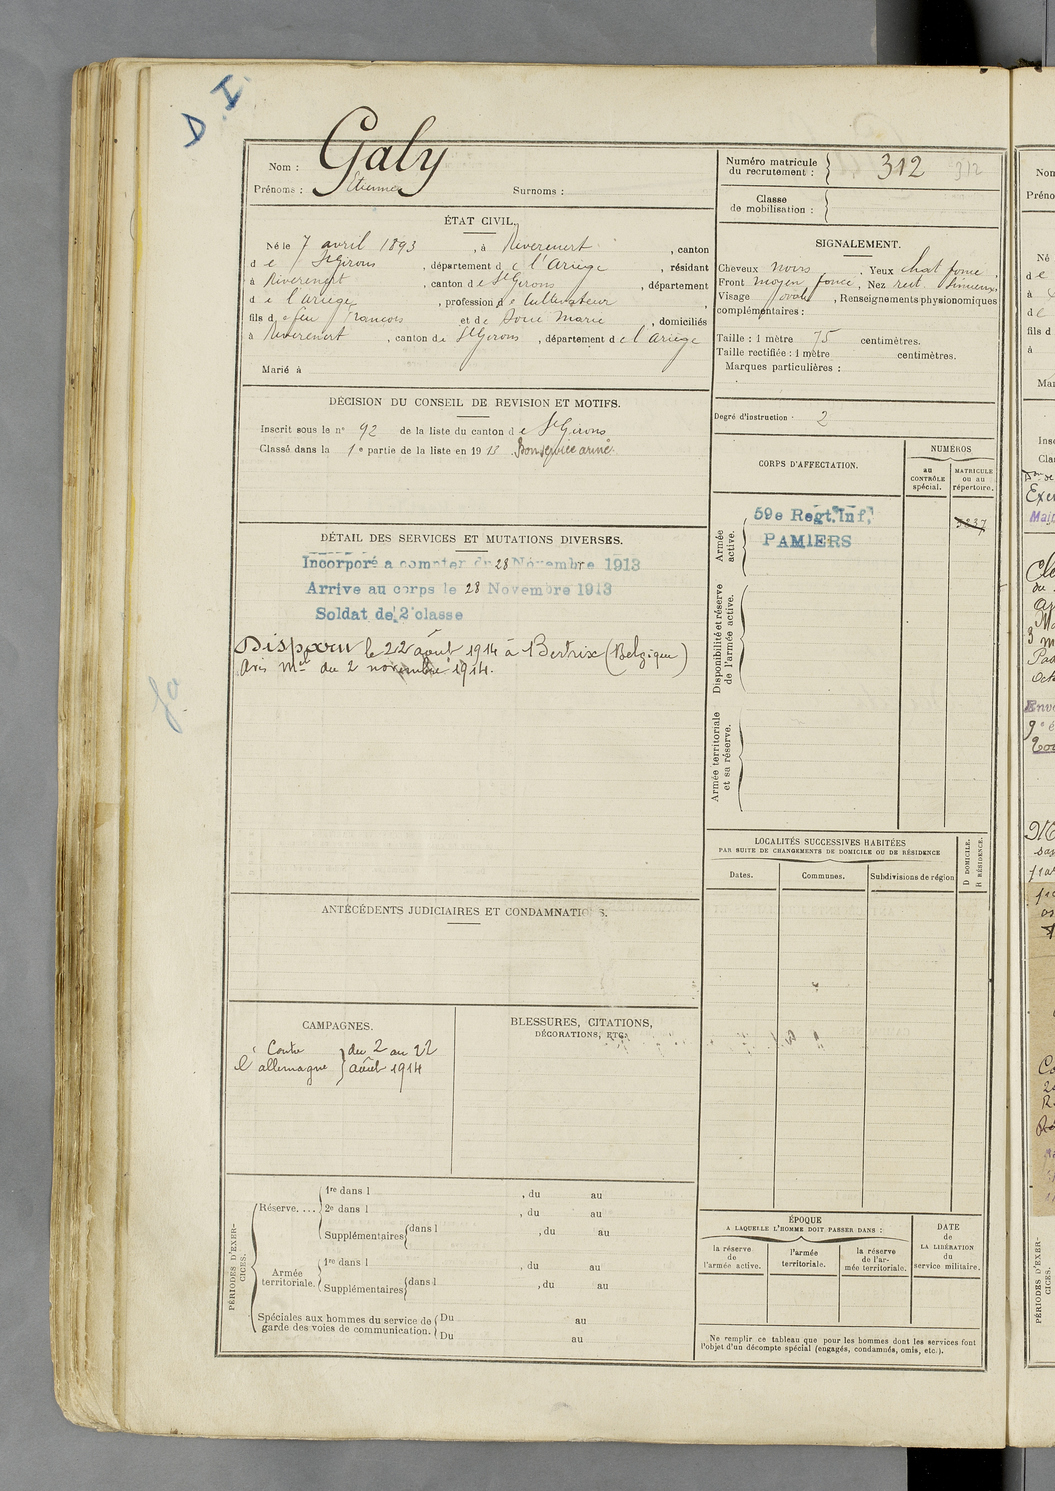 D I
Nom : Galy
Prénoms : Etienne Surnoms :
ÉTAT CIVIL.
Né le 7 avril 1893, à Riverenert, canton
de St Girons, département de l'Ariège, résidant
à Riverenert, canton de St Girons, département
de l'ariège, profession de Cultivateur,
fils de feu François et de Marie, domiciliés
à Riverenert, canton de St Girons, département de l'Ariège
Marié à
DÉCISION DU CONSEIL DE REVISION ET MOTIFS.
Inscrit sous le n° 92 de la liste du canton de St Girons
Classé dans la 1e partie de la liste en 1913. Bon service armé.
DÉTAIL DES SERVICES ET MUTATIONS DIVERSES.
Incorporé a compter du 28 Novembre 1913
Arrive au corps le 28 Novembre 1913
Soldat de 2 classe
Disparu le 22 août 1914 à Bertrix (Belgique)
Avis Mel du 2 novembre 1914.
ANTÉCÉDENTS JUDICIAIRES ET CONDAMNATIONS.
CAMPAGNES.
Contre
l'allemagne
du 2 au 22
août 1914
BLESSURES, CITATIONS,
DÉCORATIONS, ETC.
PÉRIODES D'EXER-
CICES.
Réserve. ...
1re dans l , du au
2e dans l , du au
Supplémentaires dans l , du au
Armée
territoriale.
1re dans l , du au
Supplémentaires dans l , du au
Spéciales aux hommes du service de
garde des voies de communication.
Du au
Du au
Numéro matricule
du recrutement : 312 312
Classe
de mobilisation :
SIGNALEMENT.
Cheveux noirs. Yeux chat foncé.
Front moyen foncé, Nez rect. Sinueux,
Visage ovale, Renseignements physionomiques
complémentaires :
Taille : 1 mètre 75 centimètres.
Taille rectifiée : 1 mètre centimètres.
Marques particulières :
Degré d'instruction · 2
CORPS D'AFFECTATION.
NUMÉROS
au
CONTRÔLE
spécial.
MATRICULE
ou au
répertoire.
Armée
active.
59e Regt. Inf.
PAMIERS
Disponibilité et réserve
de l'armée active.
Armée territoriale
et sa réserve.
LOCALITÉS SUCCESSIVES HABITÉES
PAR SUITE DE CHANGEMENTS DE DOMICILE OU DE RÉSIDENCE
Dates.
Communes.
Subdivisions de région
D DOMICILE.
R RÉSIDENCE.
ÉPOQUE
A LAQUELLE L'HOMME DOIT PASSER DANS :
la réserve
de
l'armée active.
l'armée
territoriale.
la réserve
de l'ar-
mée territoriale.
DATE
de
LA LIBÉRATION
du
service militaire.
Ne remplir ce tableau que pour les hommes dont les services font
l'objet d'un décompte spécial (engagés, condamnés, omis, etc.).